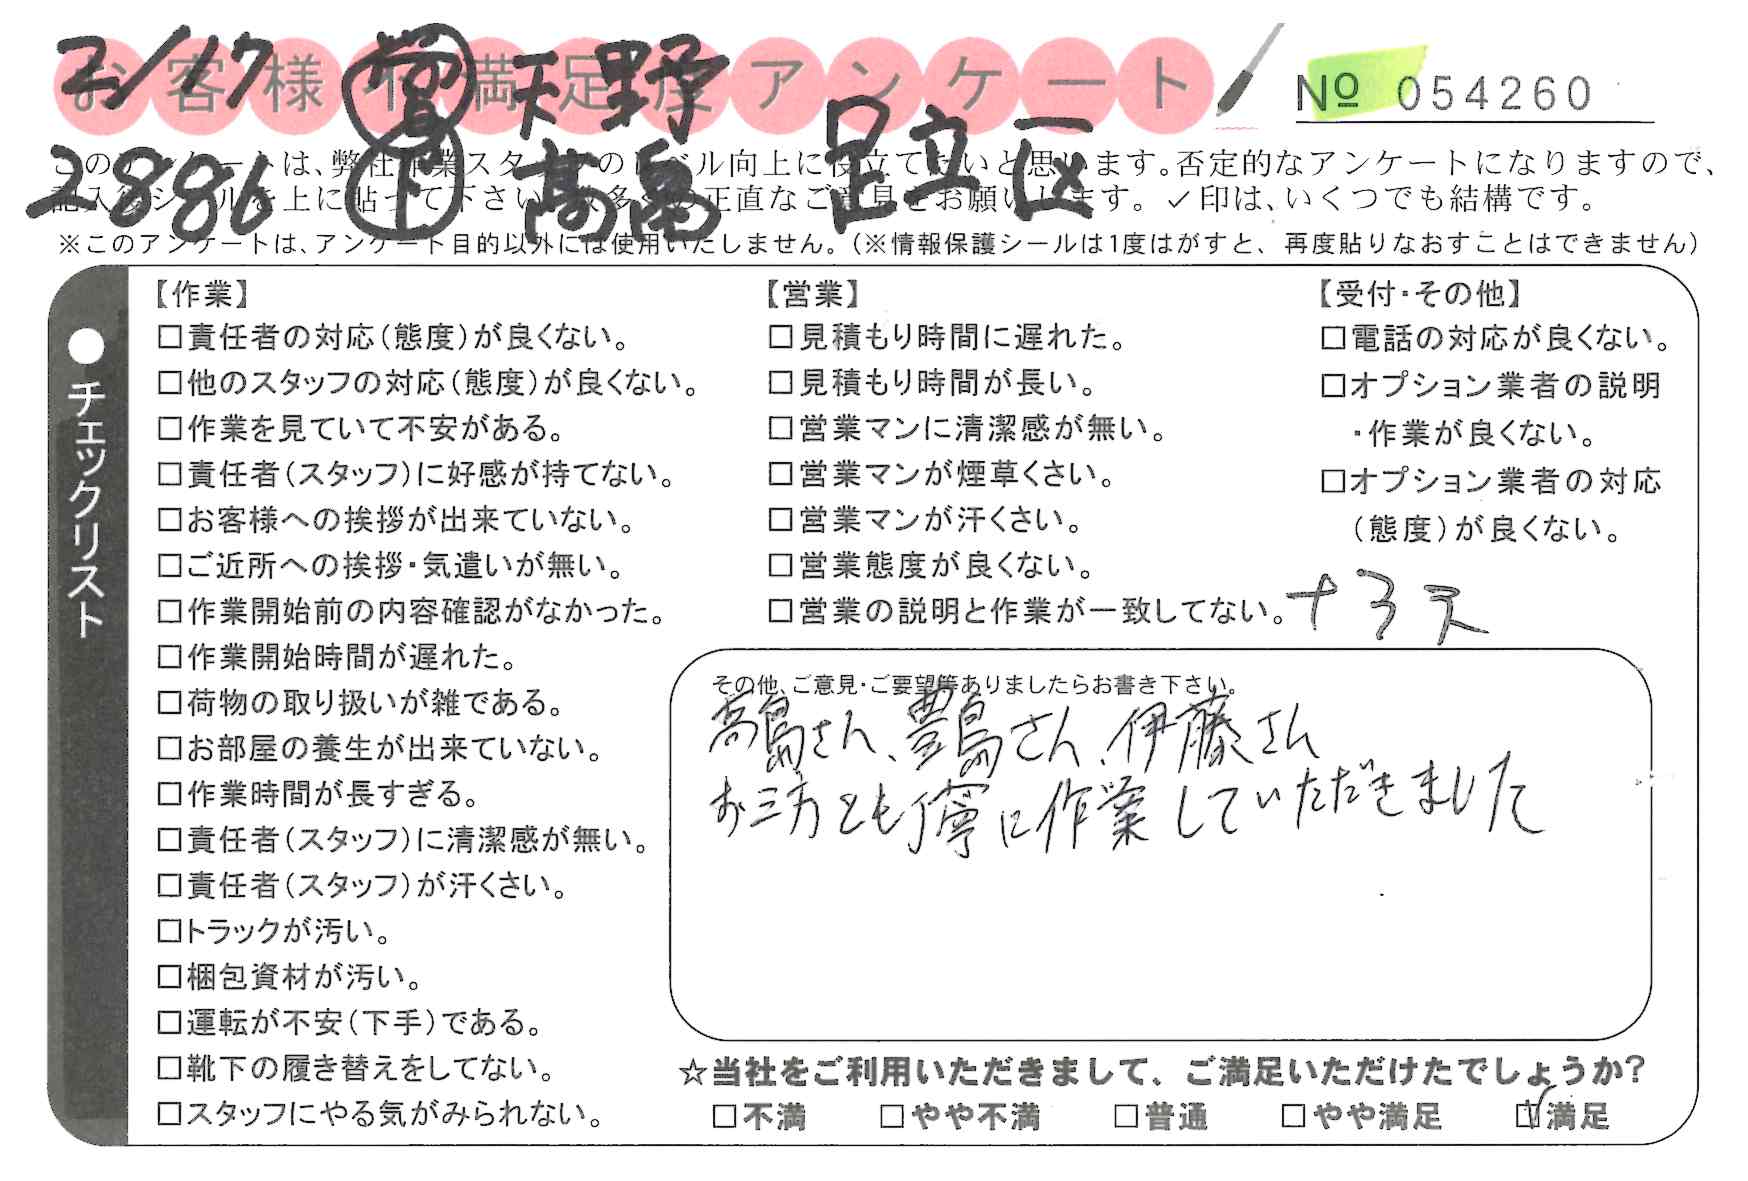 2/17 営 天野
お客様不満足度アンケート
№ 054260
2886 正 高畠 足立区
このアンケートは、弊社作業スタッフのレベル向上に役立てたいと思います。否定的なアンケートになりますので、
記入後シールを上に貼って下さい。数多くの正直なご意見をお願いします。✓印は、いくつでも結構です。
※このアンケートは、アンケート目的以外には使用いたしません。(※情報保護シールは1度はがすと、再度貼りなおすことはできません)
●チェックリスト
【作業】
□責任者の対応(態度)が良くない。
□他のスタッフの対応(態度)が良くない。
□作業を見ていて不安がある。
□責任者(スタッフ)に好感が持てない。
□お客様への挨拶が出来ていない。
□ご近所への挨拶・気遣いが無い。
□作業開始前の内容確認がなかった。
□作業開始時間が遅れた。
□荷物の取り扱いが雑である。
□お部屋の養生が出来ていない。
□作業時間が長すぎる。
□責任者(スタッフ)に清潔感が無い。
□責任者(スタッフ)が汗くさい。
□トラックが汚い。
□梱包資材が汚い。
□運転が不安(下手)である。
□靴下の履き替えをしてない。
□スタッフにやる気がみられない。
【営業】
□見積もり時間に遅れた。
□見積もり時間が長い。
□営業マンに清潔感が無い。
□営業マンが煙草くさい。
□営業マンが汗くさい。
□営業態度が良くない。
□営業の説明と作業が一致してない。
【受付・その他】
□電話の対応が良くない。
□オプション業者の説明
・作業が良くない。
□オプション業者の対応
(態度)が良くない。
その他、ご意見・ご要望等ありましたらお書き下さい。
高島さん、豊島さん、伊藤さん
お三方とも丁寧に作業していただきました
☆当社をご利用いただきまして、ご満足いただけたでしょうか?
□不満 □やや不満 □普通 □やや満足 ☑満足